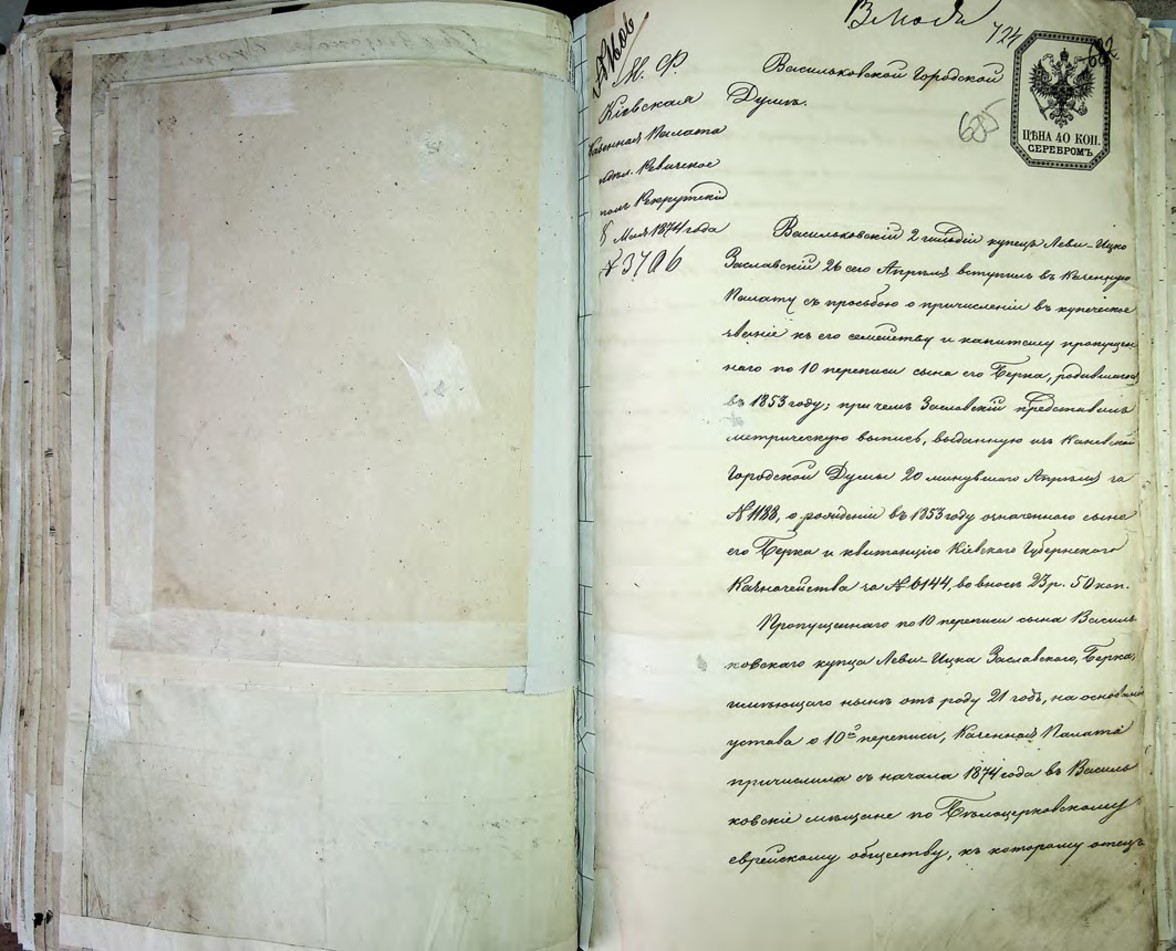 724
682
685
№ 1606
М. Ф.
Кіевская
Казенная Палата
Отл. Ревизское
Рекрутскій
8 Мая 1874 года
№ 3706
Васильковской Городской
Думѣ.
ЦѢНА 40 КОП.
СЕРЕБРОМЪ
Васильковскій 2 гильдіи купецъ Леви-Ицко
Заславскій 26 сего Апрѣля вступилъ въ Казенную
Палату съ просьбою о причисленіи въ купеческое
званіе къ его семейству и капиталу пропущен
наго по 10 переписи сына его Берка, родившагося
въ 1853 году; при чемъ Заславскій представилъ
метрическую выпись, выданную изъ Каневской
Городской Думы 20 минувшаго Апрѣля за
№ 1188, о рожденіи въ 1853 году означеннаго сына
его Берка и квитанцію Кіевскаго Губернскаго
Казначейства за № 6144, во взносѣ 23 р. 50 коп.
Пропущеннаго по 10 переписи сына Василь
ковскаго купца Леви-Ицка Заславскаго, Берка,
имѣющаго нынѣ отъ роду 21 годъ, на основаніи
устава о 10й переписи, Казенная Палата
причислила съ начала 1874 года въ Василь
ковскіе мѣщане по Бѣлоцерковскому
еврейскому обществу, къ которому отецъ